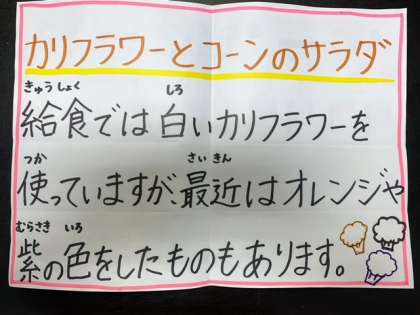 カリフラワーとコーンのサラダ
きゅうしょく しろ
給食では白いカリフラワーを
つか さいきん
使っていますが、最近はオレンジや
むらさき いろ
紫の色をしたものもあります。